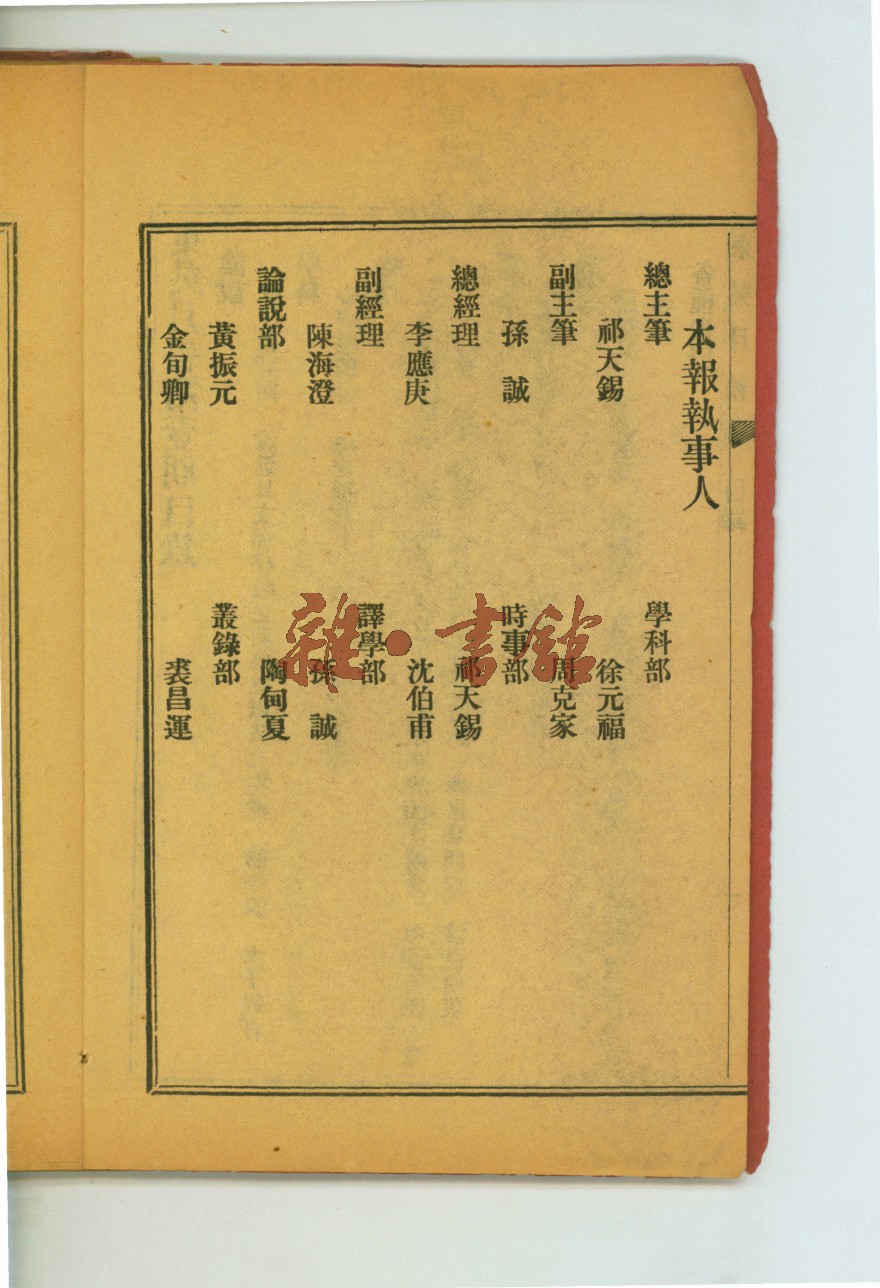 本報執事人
總主筆
祁天錫
副主筆
孫誠
總經理
李應庚
副經理
陳海澄
論說部
黃振元
金旬卿
學科部
徐元福
周克家
時事部
祁天錫
沈伯甫
譯學部
孫誠
陶甸夏
叢錄部
裘昌運
雜·書館